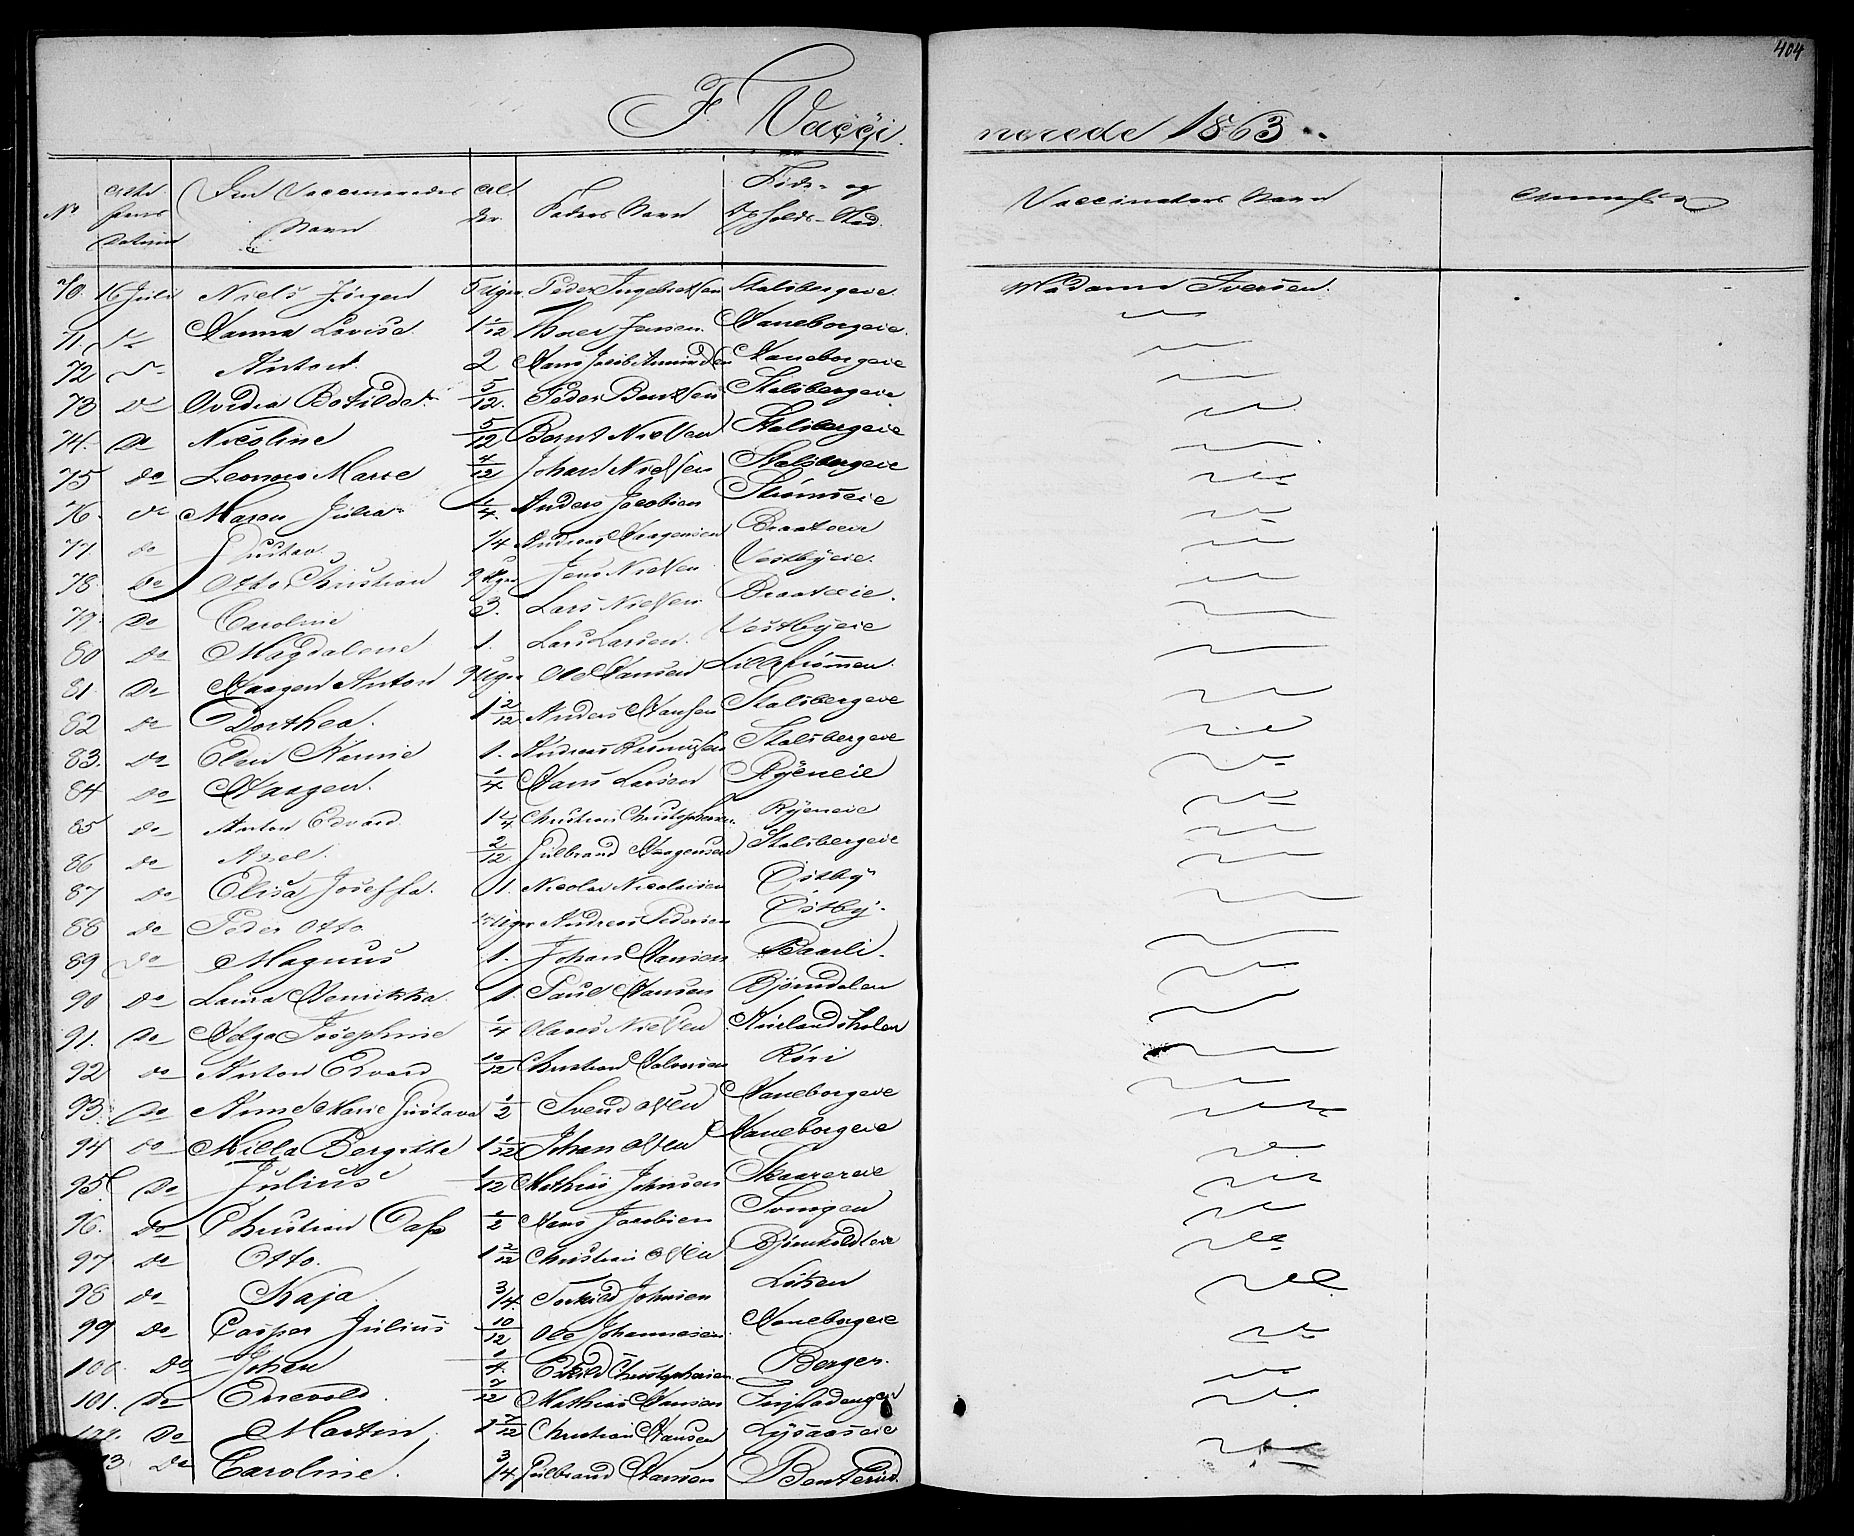 404
F. Vacci nerede 1863.
No Den Vaccineredes Navn Al der. Fadrens Navn Føde- og Opholds-Sted. Vaccinators Navn
70. 16 Juli Niels Jørgen 5 Uger Peder Ingebretsen Stalsbergeie. Madame Iversen.
71. Do Hanna Lovise 1 1/12 Thoer Jensen. Haneborgeie.
72 Do Anton. 2 Hans Jacob Haneborgeie
73 Do Ovidia Botilde. 5/12. Peder Berntsen Stalsbergeie.
74. Do Nicoline 5/12 Bernt Nielsen Stalsbergeie
75 Do Leonore Marie 4/12 Johan Nielsen Stalsbergeie
76. Do Maren Julia 1/4 Anders Jacobsen Strømseie
77. Do Gustav 1/4 Andreas Haagensen Braateeie
78. Do Otto Christian 9 Uger Jens Nielsen Vestbyeie.
79. Do Caroline 3. Lars Nielsen Braateeie.
80 Do Magdalene 1. Lars Larsen. Vestbyeie
81. Do Haagen Anton 9 Uger Ole Hansen Lillestrømmen.
82 Do Dorthea. 1 2/12. Anders Hansen Stalsbergeie
83. Do Elen Karine 1. Andreas Rasmussen Stalsbergeie
84 Do Haagen. 1/4 Hans Larsen Ryeneie
85 Do Anton Edvard. 1 1/4 Christian Christophersen. Ryeneie
86 Do Axel. 2/12. Gulbrand Haagensen Stalsbergeie
87 Do Elisa Joseffa. 1. Nicolai Nicolaisen Østby
88 Do Peder Otto Uger Andreas Pedersen Østby.
89 Do Magnus 1. Johan Hansen Baarli.
90 Do Laura Henrikka. 1. Paul Hansen Bjørndalen
91. Do Helga Josephine 1/4 Olaves Nielsen
92 Do Anton Edvard 10/12 Christian Halvorsen Røri
93. Do Anne Marie Gustava 1/2 Svend Olsen Haneborgeie
94 Do Milla Bergithe 1 1/12 Johan Olsen Haneborgeie
95. Do Julius 1/12 Mathias Johnsen Skaarereie
96. Do Christian 1/2 Hans Jacobsen
97 Do Otto. 1 2/12 Christian Olsen
98 Do Kaja. 3/4 Torkild Johnsen Løken
99 Do Casper Julius 10/12 Ole Johannesen. Haneborgeie
100. Do Johan 1/4. Christophersen. Berger.
101. Do Enevold. 7/12 Mathias Hansen
Do Martin. 1 7/12 Christian Hansen
3. Do Caroline. 3/4 Gulbrand Hansen Benterud.